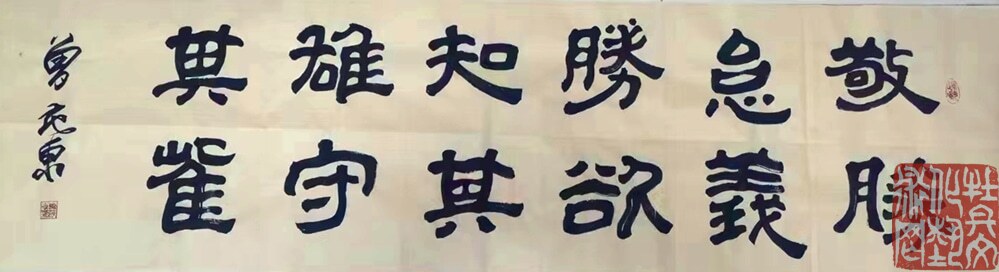 敬勝
怠義
勝欲
知其
雄守
其雌
曾東